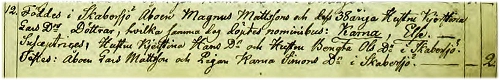 12. Föddes i Skaborsjö Aboen Magnus Mattssons och dess 38åriga Hustru Kjerstina
Lars Drs Döttrar, hvilka samma dag döptes nominibus: Karna, Elle.
Susceptrices, Hustru Kjerstina Hans Dr och Hustru Bengta Ols Dr i Skaborsjö.
Testes: Aboen Lars Mattsson och Pigan Karna Simons Dr i Skaborsjö.